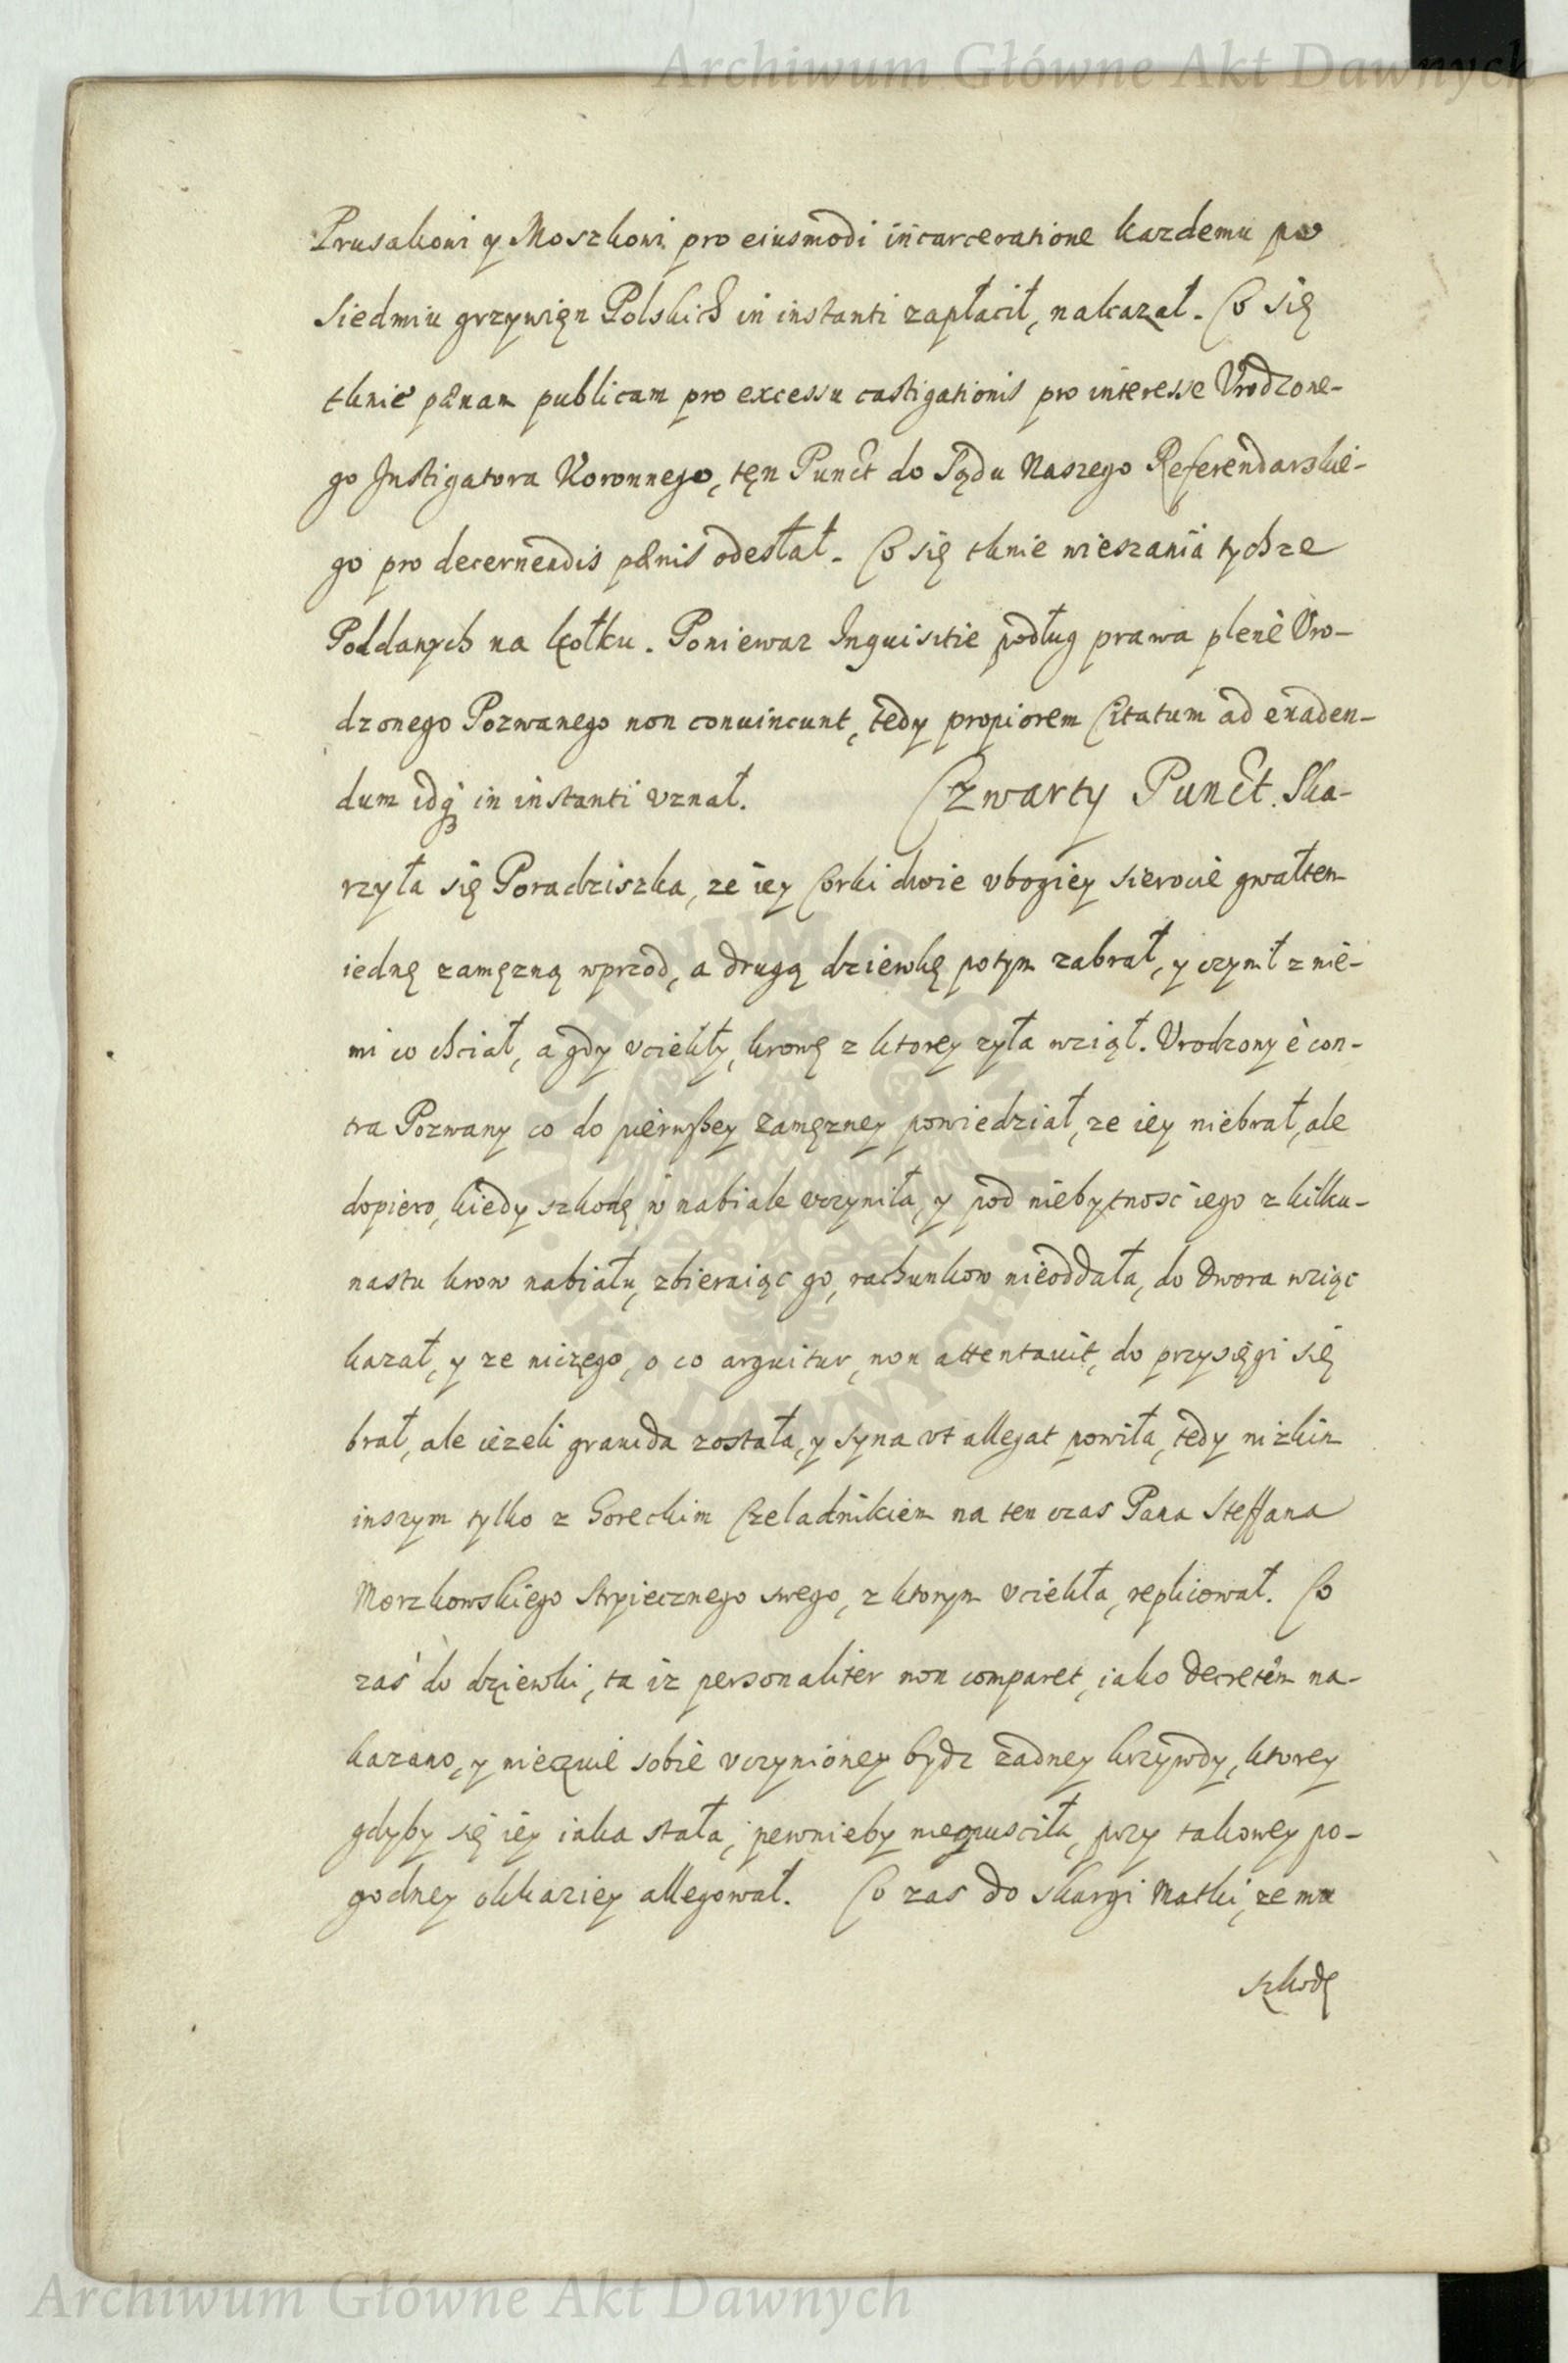 Archiwum Główne Akt Dawnych
Prusakowi y Moszkowi pro eiusmodi incarceratione kazdemu po
siedmiu grzywięn Polskich in instanti zapłacił, nakazał. Co się
tknie pænam publicam pro excessu castigationis pro interesse Vrodzone-
go Instigatora Koronnego, tęn Punct do Sądu Naszego Referendarskie-
go pro decernendis pænis odesłał. Co się tknie wieszania tychze
Poddanych na kołku. Poniewaz Inquisitie podług prawa plenè Vro-
dzonego Pozwanego non conuincunt, tedy propiorem Citatum ad euaden-
dum idq; in instanti vznał. Czwarty Punct. Ska-
rzyła się Poradziszka, ze iey Corki dwie vbogiey sierocie gwałtem
iednę zamęzną wprzod, a drugą dziewkę potym zabrał, y czynił z nie-
mi co chciał, a gdy vciekły, krowę z ktorey zyła wziął. Vrodzony è con-
tra Pozwany co do pierwszey zamęzney powiedział, ze iey niebrał, ale
dopiero, kiedy szkodę w nabiale vczyniła, y pod niebytnosc iego z kilku-
nastu krow nabiału, zbieraiąc go, rachunkow nieoddała, do dwora wziąc
kazał, y ze niczego, o co arguitur, non attentauit, do przysięgi się
brał, ale iezeli grauida została, y syna vt allegat powiła, tedy nizkim
inszym tylko z Goreckim Czeladnikiem na ten czas Pana Steffana
Morzkowskiego Stryiecznego swego, z ktorym vciekła, replicował. Co
zaś do dziewki, ta iz personaliter non comparet, iako decretem na-
kazano, y nieczuie sobie vczynioney bydz zadney krzywdy, ktorey
gdyby się iey iaka stała, pewnieby nieopusciła, przy takowey po-
godney okkaziey allegował. Co zas do skargi Matki, ze mu
szkodę
Archiwum Główne Akt Dawnych